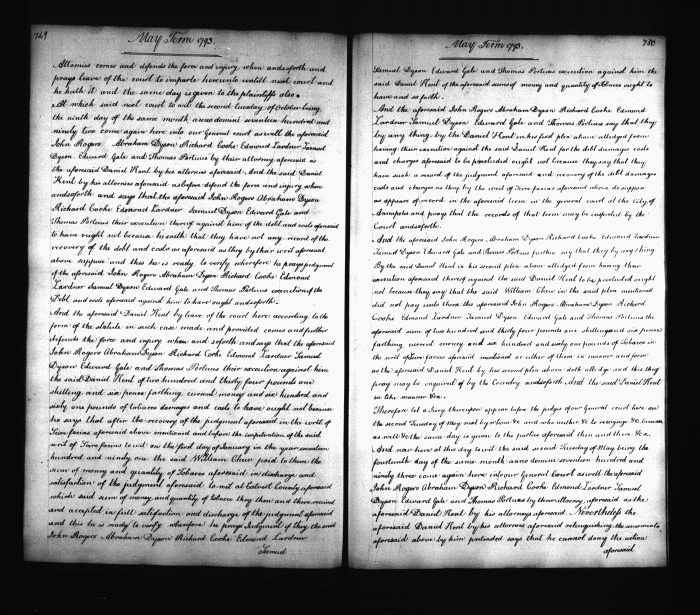 749
May Term 1793.
Attornies comes and defends the force and injury when andsoforth and
prays leave of the court to imparle hereunto untill next court and
he hath it and the same day is given to the plaintiffs also.
At which said next court to wit the second Tuesday of October being
the ninth day of the same month anno domini seventeen hundred and
ninety two come again here into our General court aswell the aforesaid
John Rogers Abraham Dyson Richard Cooke Edmond Lardner Samuel
Dyson Edward Gale and Thomas Porteus by their attorney aforesaid as
the aforesaid Daniel Kent by his attornies aforesaid. And the said Daniel
Kent by his attornies aforesaid as before defend the force and injury when
andsoforth and says that the aforesaid John Rogers Abraham Dyson
Richard Cooke Edmond Lardner Samuel Dyson Edward Gale and
Thomas Porteus their execution thereof against him of the debt and costs aforesaid
to have ought not because he saith that they have not any record of the
recovery of the debt and costs as aforesaid as they by their writ aforesaid
above suppose and this he is ready to verify wherefore he prays judgment
if the aforesaid John Rogers Abraham Dyson Richard Cooke Edmond
Lardner Samuel Dyson Edward Gale and Thomas Porteus execution of the
Debt and costs aforesaid against him to have ought andsoforth.
And the aforesaid Daniel Kent by leave of the court here according to the
form of the statute in such case made and provided comes and further
defends the force and injury when and soforth and says that the aforesaid
John Rogers Abraham Dyson Richard Cooke Edmond Lardner Samuel
Dyson Edward Gale and Thomas Porteus their execution against him
the said Daniel Kent of two hundred and thirty four pounds one
shilling and six pence farthing current money and six hundred and
sixty one pounds of tobacco damages and costs to have ought not because
he says that after the recovery of the judgment aforesaid in the writ of
Scire facias aforesaid above mentioned and before the impetration of the said
writ of Scire facias to wit on the first day of January in the year seventeen
hundred and ninety one the said William Chew paid to them the
sum of money and quantity of Tobacco aforesaid in discharge and
satisfaction of the judgment aforesaid to wit at Calvert County aforesaid
which said sum of money and quantity of tobacco they then and there received
and accepted in full satisfaction and discharge of the judgment aforesaid
and this he is ready to verify wherefore he prays Judgment if they the said
John Rogers Abraham Dyson Richard Cooke Edmond Lardner
Samuel
750
May Term 1793.
Samuel Dyson Edward Gale and Thomas Porteus execution against him the
said Daniel Kent of the aforesaid sums of money and quantity of Tobacco ought to
have and so forth.
And the aforesaid John Rogers Abraham Dyson Richard Cooke Edmond
Lardner Samuel Dyson Edward Gale and Thomas Porteus say that they
by any thing by the Daniel Kent in his first plea above alledged from
having their execution against the said Daniel Kent for the debt damages costs
and charges aforesaid to be precluded ought not because they say that they
have such a record of the judgment aforesaid and recovery of the debt damages
costs and charges as they by the writ of Scire facias aforesaid above do suppose
as appears of record in the aforesaid term in the general court at the City of
Annapolis and prays that the records of that term may be inspected by the
Court andsoforth.
And the aforesaid John Rogers Abraham Dyson Richard Cooke Edmond Lardner
Samuel Dyson Edward Gale and Thomas Porteus further say that they by any thing
By the said Daniel Kent in his second plea above alledged from having their
execution aforesaid thereof against the said Daniel Kent to be precluded ought
not because they say that the said William Chew in the said plea mentioned
did not pay unto them the aforesaid John Rogers Abraham Dyson Richard
Cooke Edmond Lardner Samuel Dyson Edward Gale and Thomas Porteus the
aforesaid sum of two hundred and thirty four pounds one shilling and six pence
farthing current money and six hundred and sixty one pounds of Tobacco in
the writ of Scire facias aforesaid mentioned or either of them in manner and form
as the aforesaid Daniel Kent by his second plea above doth alledge and this they
pray may be enquired of by the Country andsoforth And the said Daniel Kent
in like manner &ca.
Therefore let a Jury thereupon appear before the judges of our General court here on
the second Tuesday of May next by whom &c and who neither &c to recognize &c because
as well &c the same day is given to the parties aforesaid then and there &ca.
And now here at this day to wit the said second Tuesday of May being the
fourteenth day of the same month anno domini seventeen hundred and
ninety three come again here into our General Court aswell the aforesaid
John Rogers Abraham Dyson Richard Cooke Edmond Lardner Samuel
Dyson Edward Gale and Thomas Porteus by their attorney aforesaid as the
aforesaid Daniel Kent by his attornies aforesaid. Nevertheless the
aforesaid Daniel Kent by his attornies aforesaid relinquishing the averments
aforesaid above by him pretended says that he cannot deny the action
aforesaid